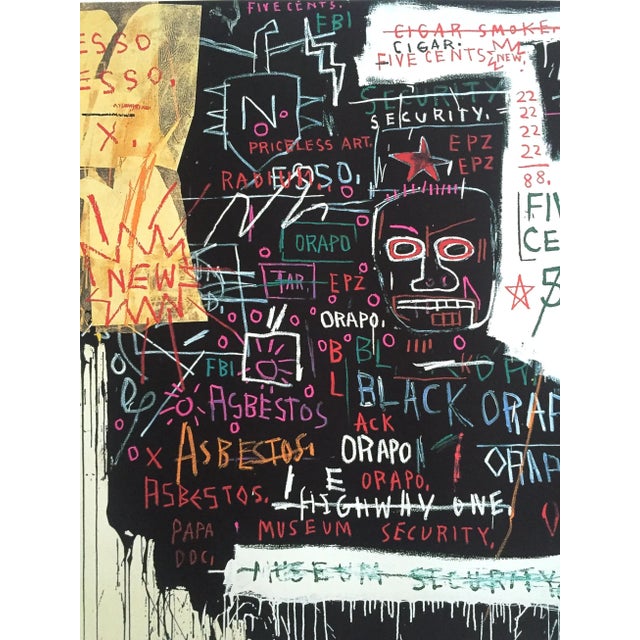 FIVE CENTS.
FBI
CIGAR SMOKE.
CIGAR.
FIVE CENTS NEW.
ESSO
ESSO.
X.
N.
SECURITY
SECURITY.
22
22
22
22
88.
PRICELESS ART.
EPZ
EPZ
RADIUM.
ESSO.
FIV
CE
ORAPO
NEW
TAR.
EPZ
ORAPO.
FBI
B
L
BL
BLACK ORAP
ASBESTOS
ACK
ASBESTOS.
ORAPO
ORAP
X
E
ORAPO.
ASBESTOS.
HIGHWAY ONE.
PAPA
DOC.
MUSEUM SECURITY.
MUSEUM SECURITY